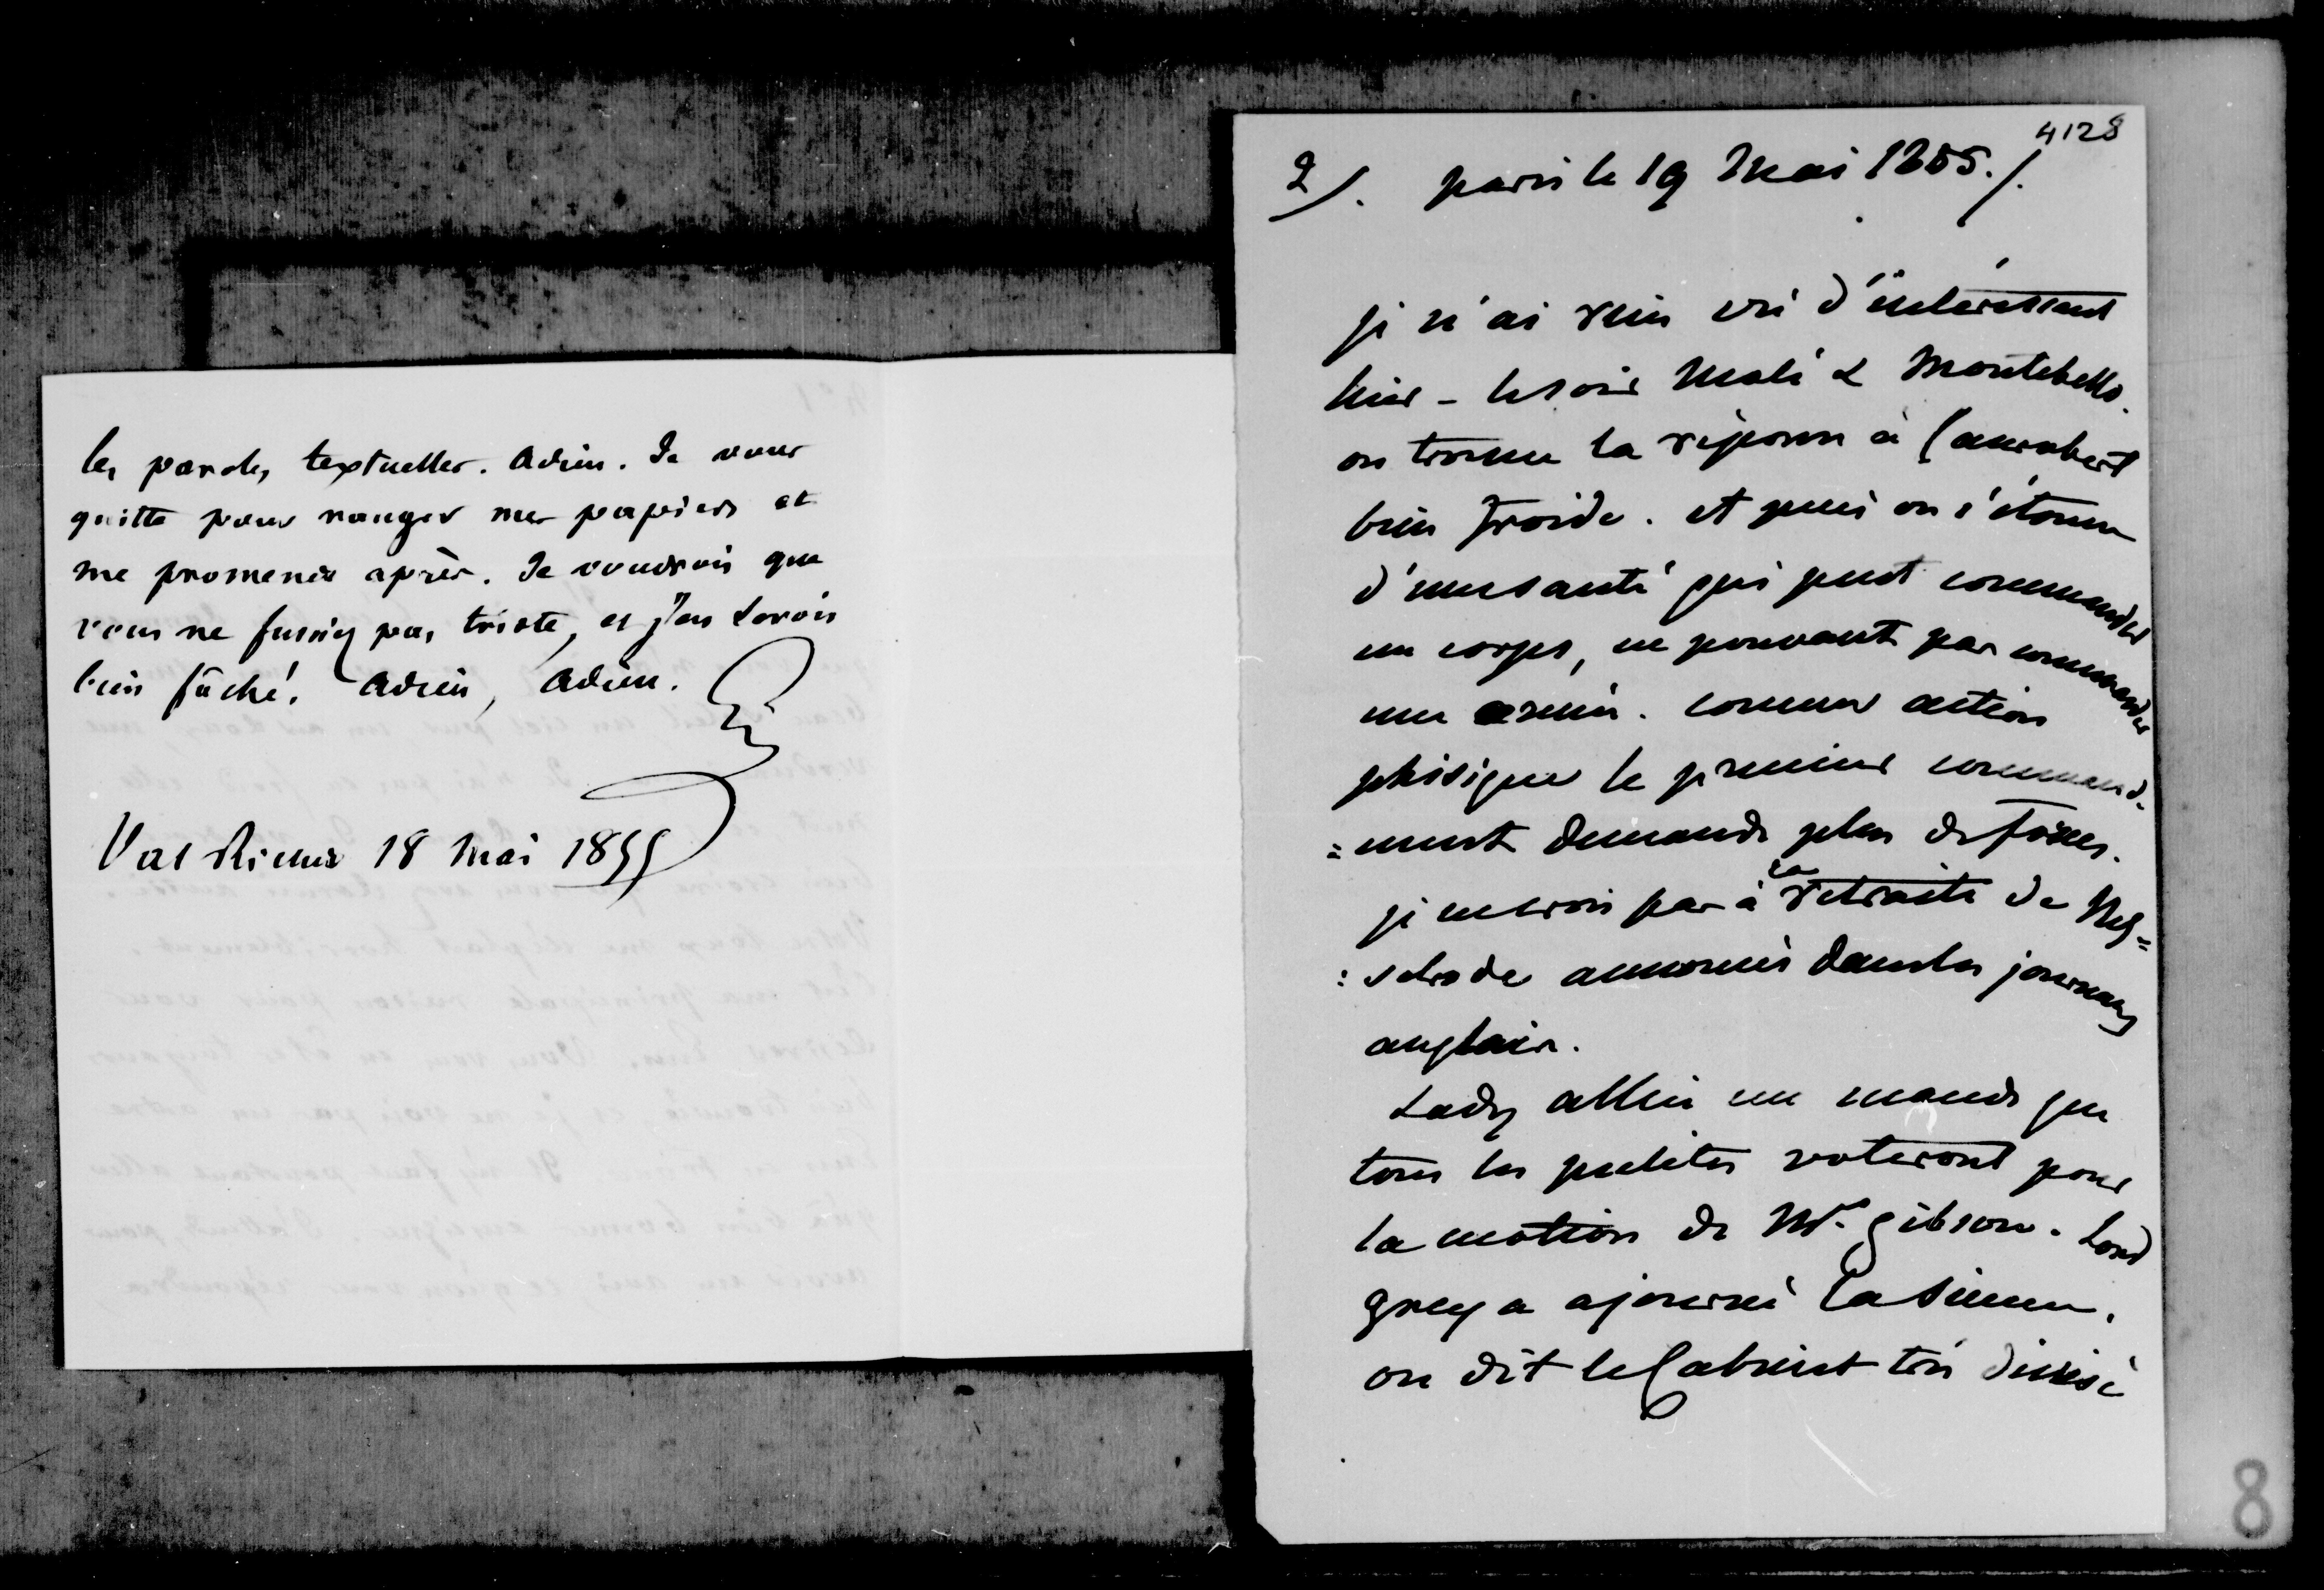 les paroles textuelles. Adieu. Je vous
quitte pour ranger mes papiers et
me promener après. Je voudrois que
vous ne fussiez pas triste, et j'en serois
bien fâché. Adieu, Adieu.
Val Richer 18 Mai 1855
4128
2/. paris le 19 Mai 1855./.
je n'ai rien vu d'intéressant
hier - le soir Molé & Montebello.
on trouve la réponse à Canrobert
bien froide. et puis on s'étonne
d'une santé qui peut commander
un corps, ne pouvant pas commander
une armée. comme action
phisique le premier command=
=ment demande plus de forces.
je ne crois pas à la retraite de Nes=
=selrode annoncée dans les journaux
anglais.
Lady allen me mande que
tous les peelites voteront pour
la motion de Mr. gibson. Lord
grey a ajourné la sienne.
on dit le Cabinet très divisé
8